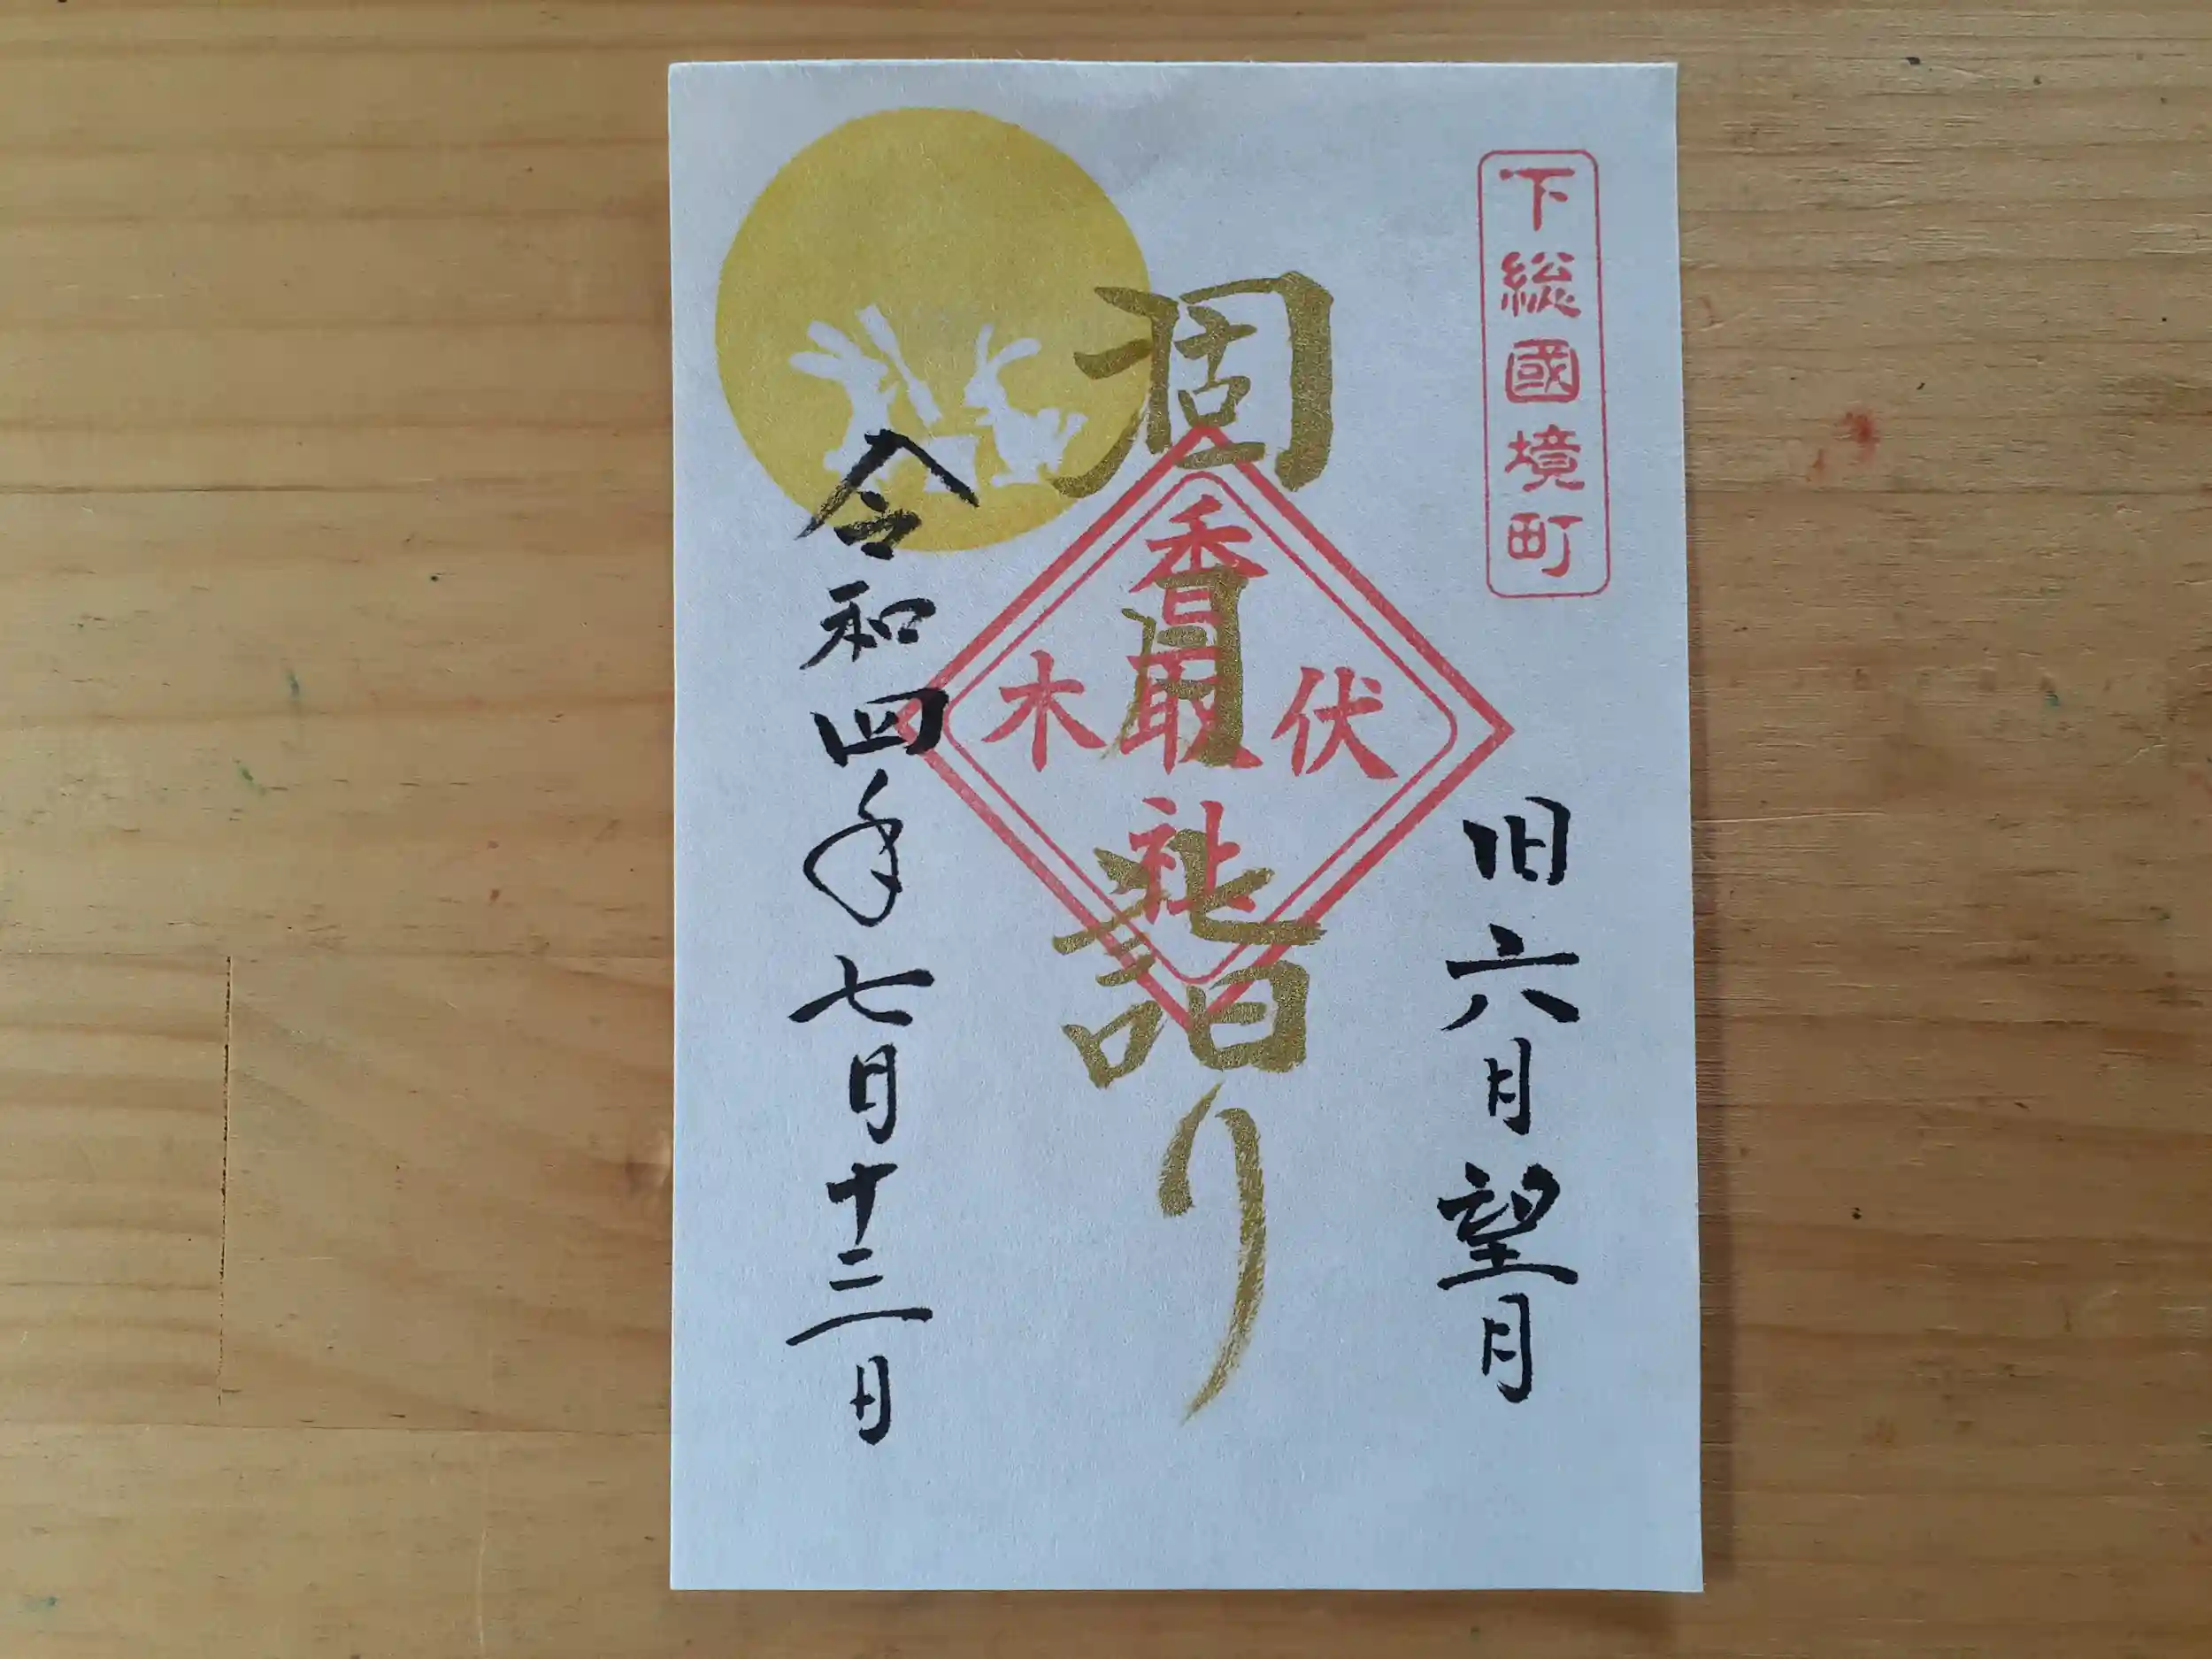 下総國境町
旧六月望月
満月詣り
伏木
香取社
令和四年七月十三日